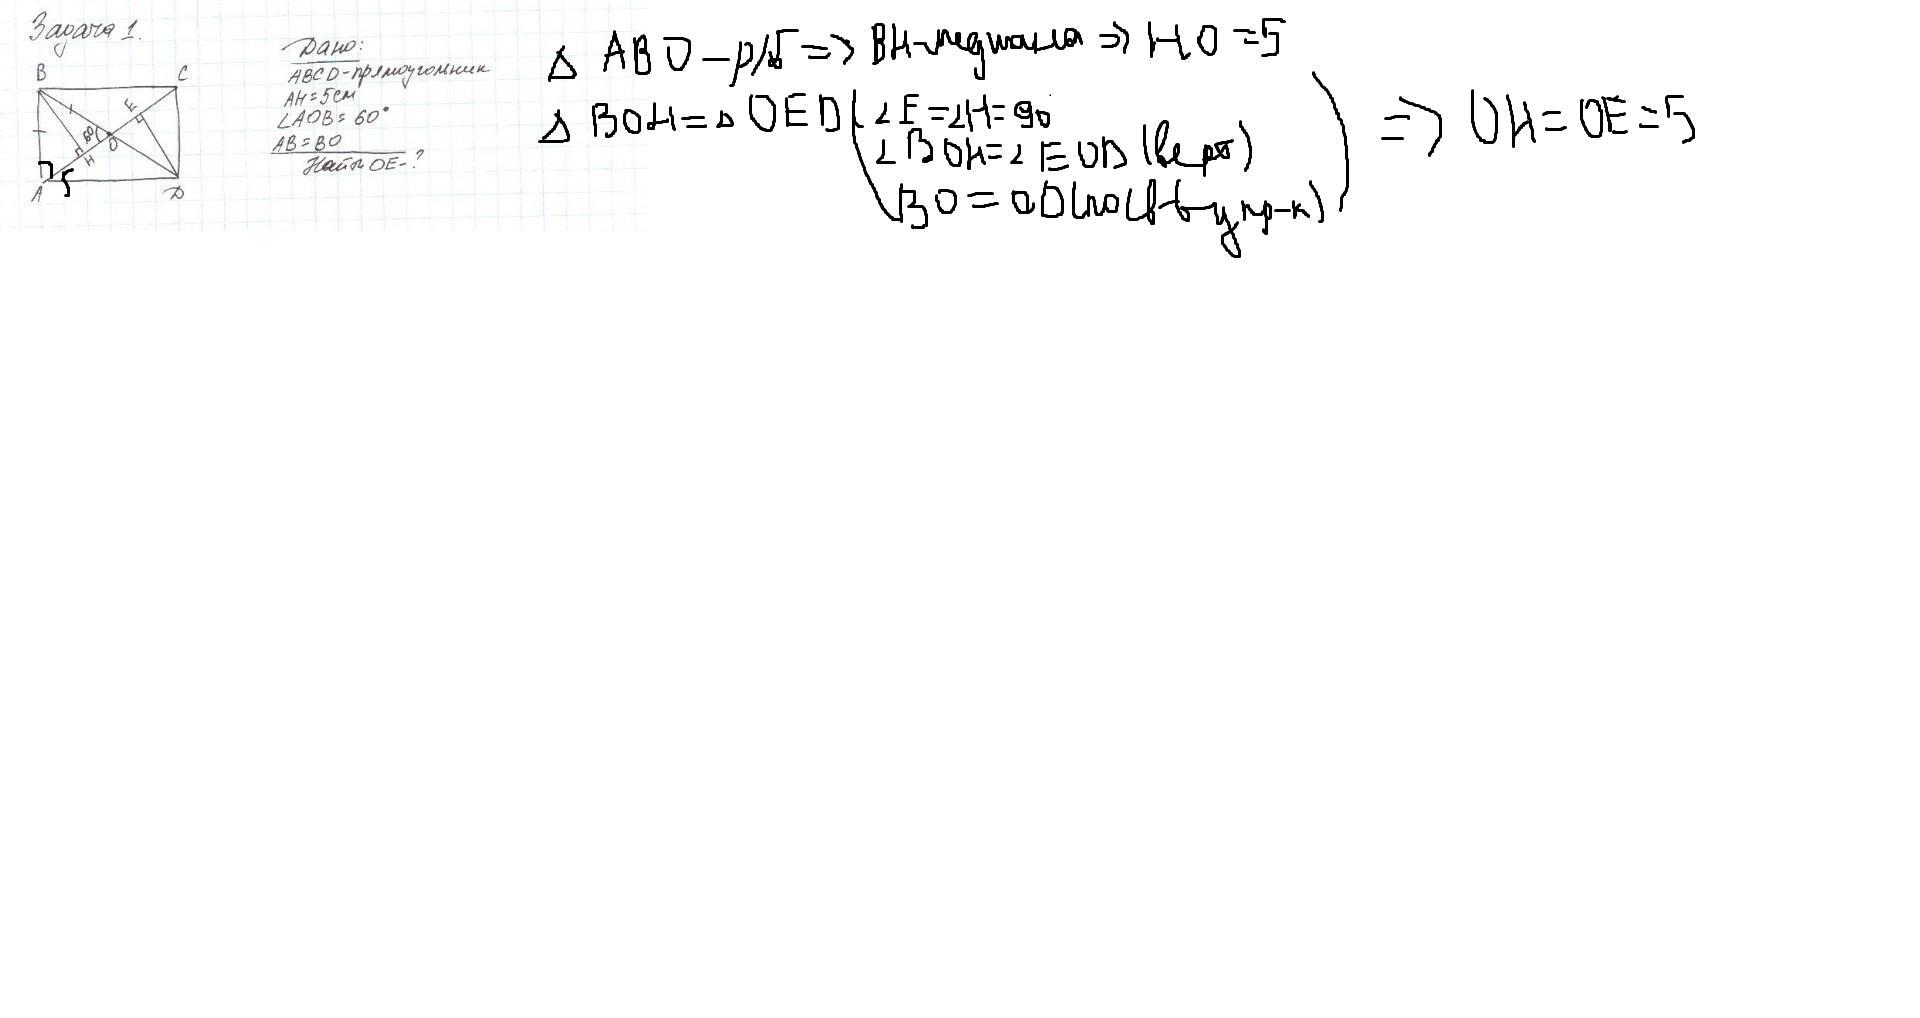 Задача 1.
B C
E
60
O
H
A 5 D
Дано:
ABCD-прямоугольник
AH=5см
∠AOB=60°
AB=BO
Найти OE-?
Δ ABO – р/б => BH-медиана => HO =5
Δ BOH = Δ OED ( ∠E =∠H= 90
∠BOH=∠EOD (верт)
BO = OD(по св-ву пр-к) ) => OH = OE =5